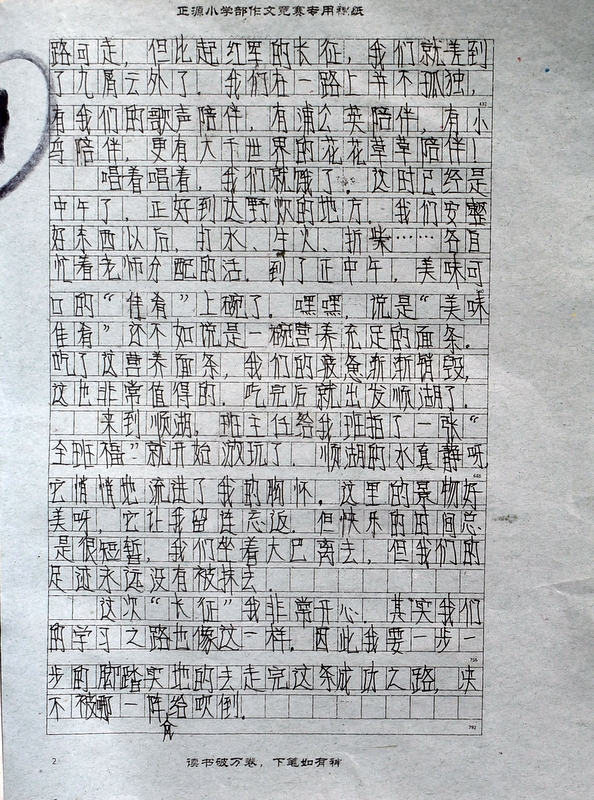 正源小学部作文竞赛专用稿纸
路可走，但比起红军的长征，我们就差到
了九霄云外了。我们在一路上并不孤独，
432
有我们的歌声陪伴，有浦公英陪伴，有小
鸟陪伴，更有大千世界的花花草草陪伴！
唱着唱着，我们就饿了。这时已经是
中午了，正好到达野炊的地方。我们安整
好东西以后，打水、生火、折柴……各自
忙着老师分配的活。到了正中午，美味可
口的“佳肴”上碗了。嘿嘿，说是“美味
佳肴”还不如说是一碗营养充足的面条。
吃了这营养面条，我们的疲惫渐渐销毁，
这也非常值得的。吃完后就出发顺湖了。
来到顺湖，班主任给我班拍了一张“
全班福”就开始游玩了。顺湖的水真静呀
它悄悄地流进了我的胸怀。这里的景物好
美呀，它让我留连忘返。但快乐的时间总
是很短暂，我们坐着大巴离去，但我们的
足迹永远没有被抹去。
这次“长征”我非常开心。其实我们
的学习之路也像这一样。因此我要一步一
756
步的脚踏实地的去走完这条成功之路，决
不被那一阵给吹倒。
792
2
读书破万卷，下笔如有神